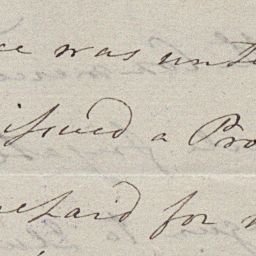 ce was unti
issued a Pro
he said for